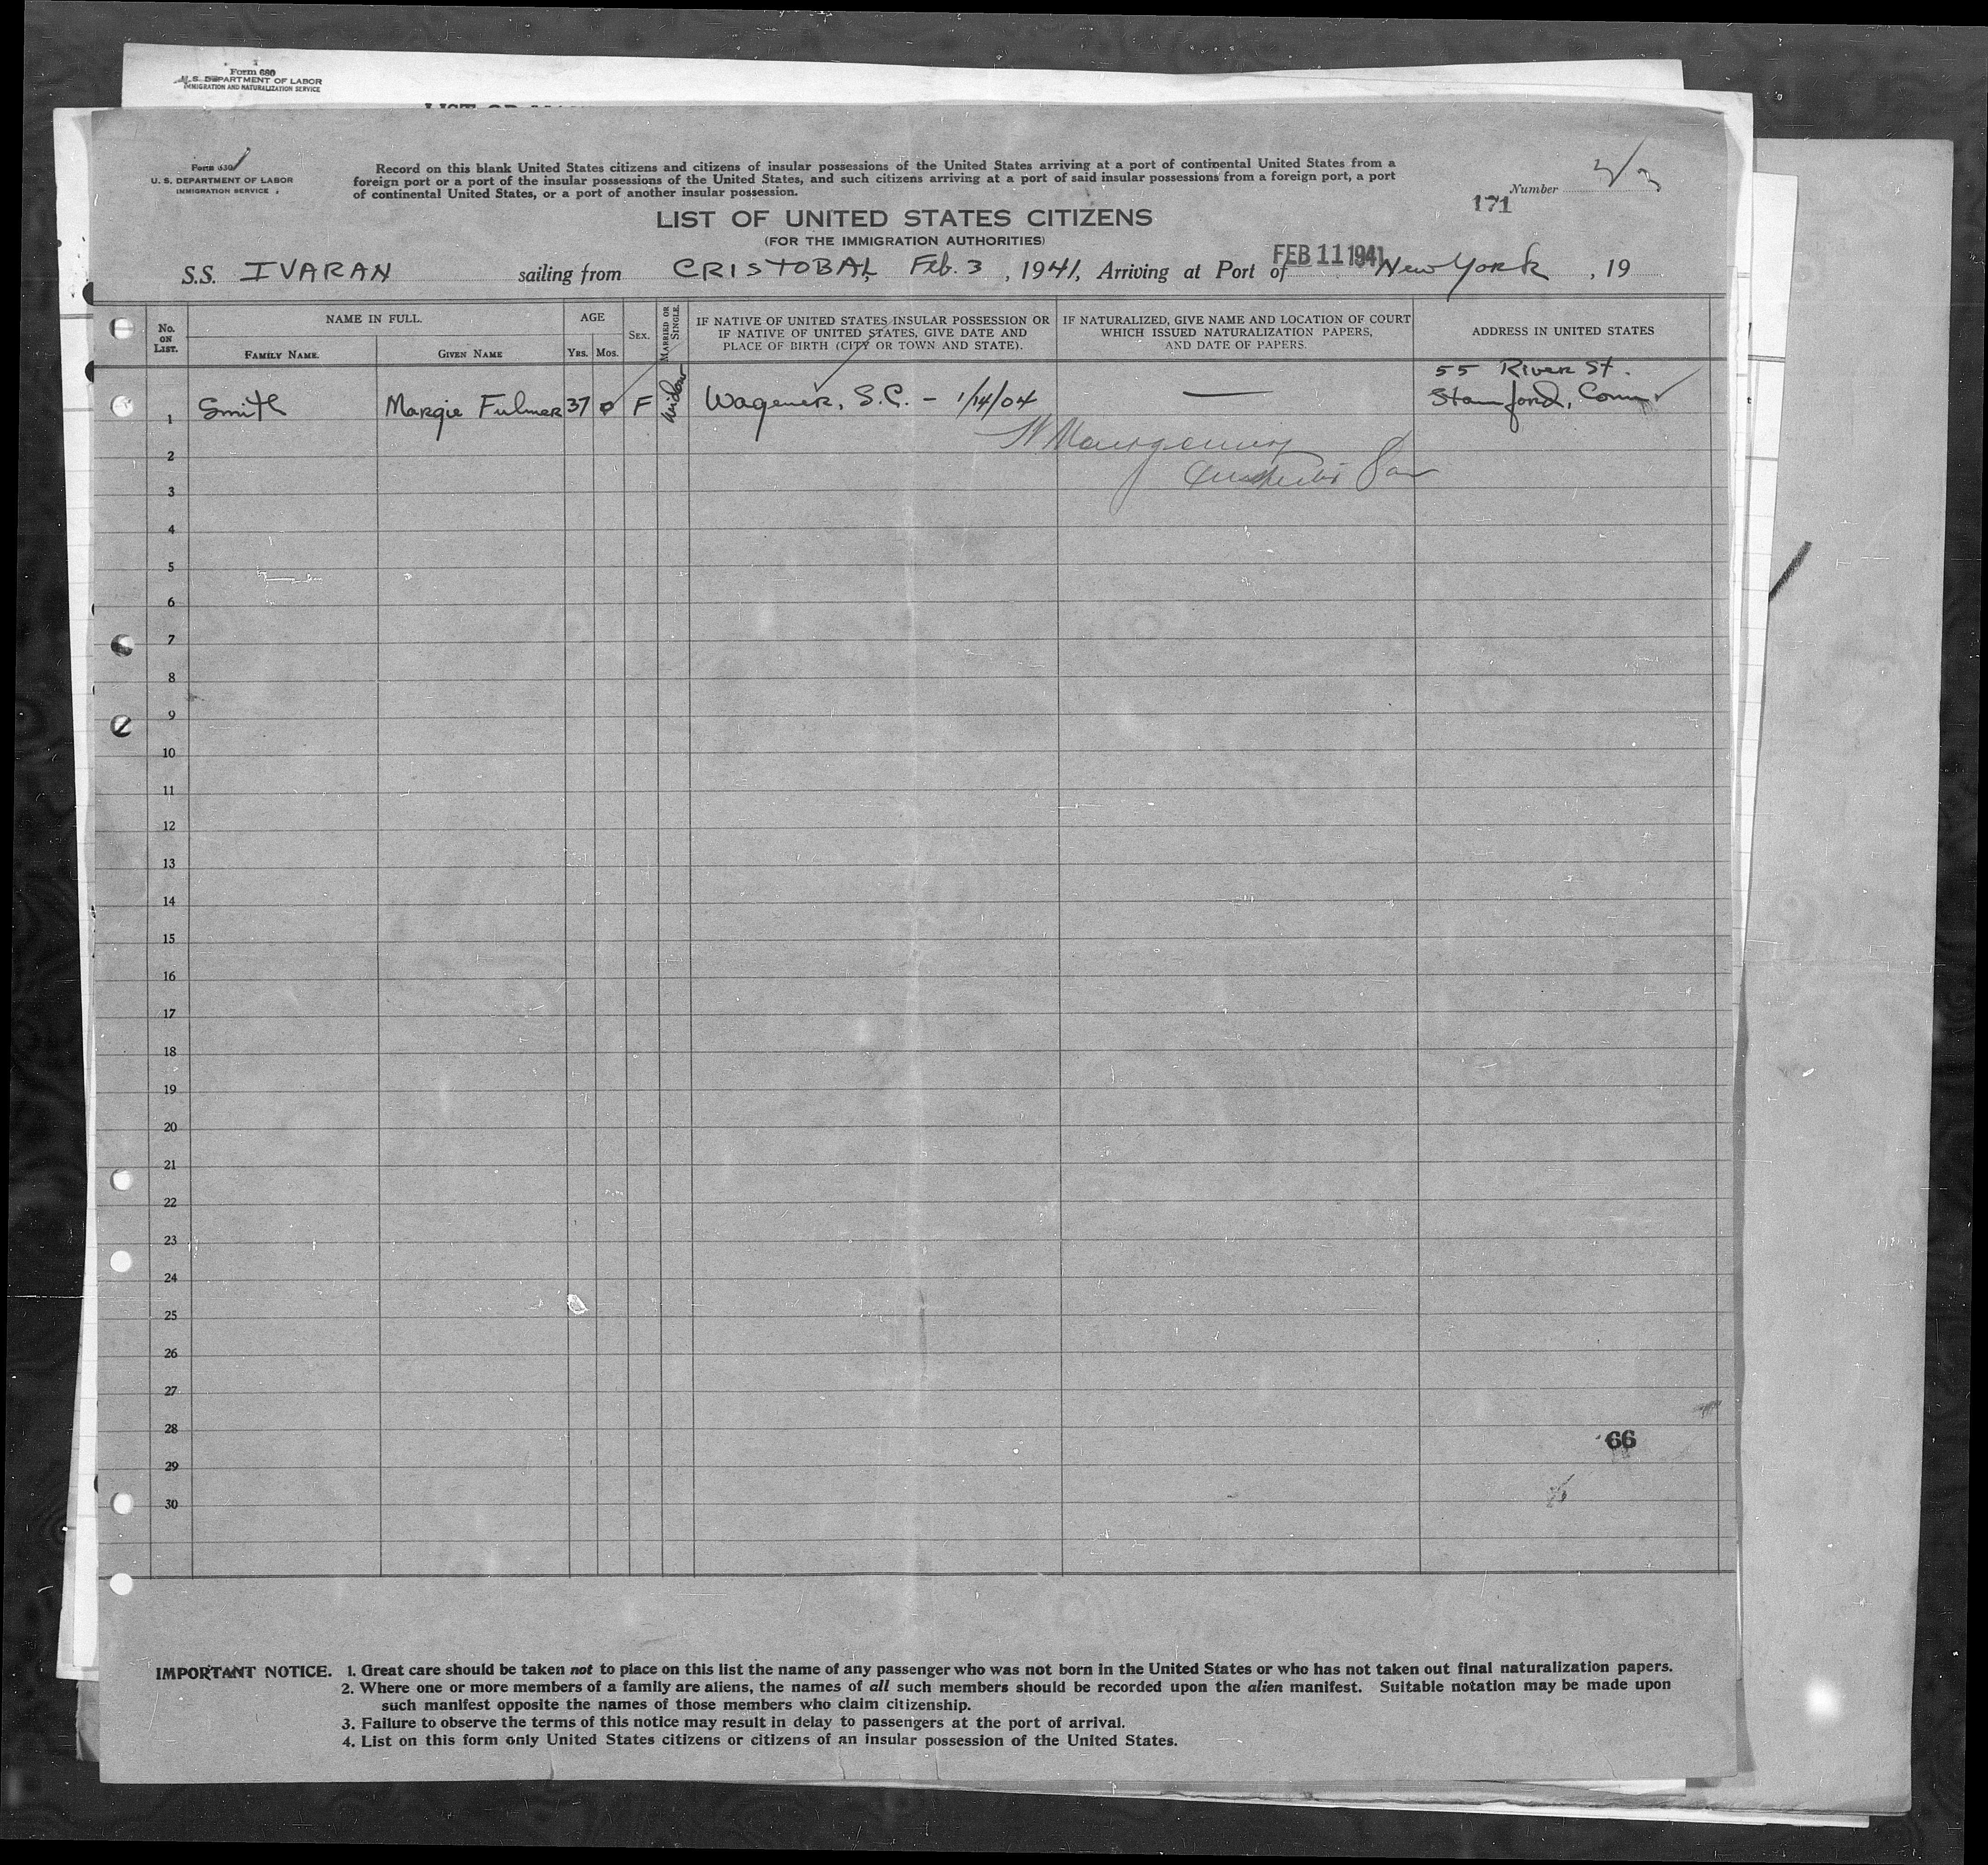 Form 680
U. S. DEPARTMENT OF LABOR
IMMIGRATION AND NATURALIZATION SERVICE
Form 630
U. S. DEPARTMENT OF LABOR
IMMIGRATION SERVICE
Record on this blank United States citizens and citizens of insular possessions of the United States arriving at a port of continental United States from a
foreign port or a port of the insular possessions of the United States, and such citizens arriving at a port of said insular possessions from a foreign port, a port
of continental United States, or a port of another insular possession.
Number
171
LIST OF UNITED STATES CITIZENS
(FOR THE IMMIGRATION AUTHORITIES)
FEB 11 1941
S.S. IVARAN sailing from CRISTOBAL, Feb. 3, 1941, Arriving at Port of New York, 19
No. ON LIST.
NAME IN FULL.
FAMILY NAME.
GIVEN NAME
AGE
YRS. MOS.
SEX.
MARRIED OR SINGLE.
IF NATIVE OF UNITED STATES INSULAR POSSESSION OR
IF NATIVE OF UNITED STATES, GIVE DATE AND
PLACE OF BIRTH (CITY OR TOWN AND STATE).
IF NATURALIZED, GIVE NAME AND LOCATION OF COURT
WHICH ISSUED NATURALIZATION PAPERS,
AND DATE OF PAPERS.
ADDRESS IN UNITED STATES
55 River St.
1 Smith Margie Fulmer 37 0 F Widow Wagener, S.C. - 1/14/04 — Stamford, Conn.
2
3
4
5
6
7
8
9
10
11
12
13
14
15
16
17
18
19
20
21
22
23
24
25
26
27
28
66
29
30
IMPORTANT NOTICE. 1. Great care should be taken not to place on this list the name of any passenger who was not born in the United States or who has not taken out final naturalization papers.
2. Where one or more members of a family are aliens, the names of all such members should be recorded upon the alien manifest. Suitable notation may be made upon
such manifest opposite the names of those members who claim citizenship.
3. Failure to observe the terms of this notice may result in delay to passengers at the port of arrival.
4. List on this form only United States citizens or citizens of an insular possession of the United States.